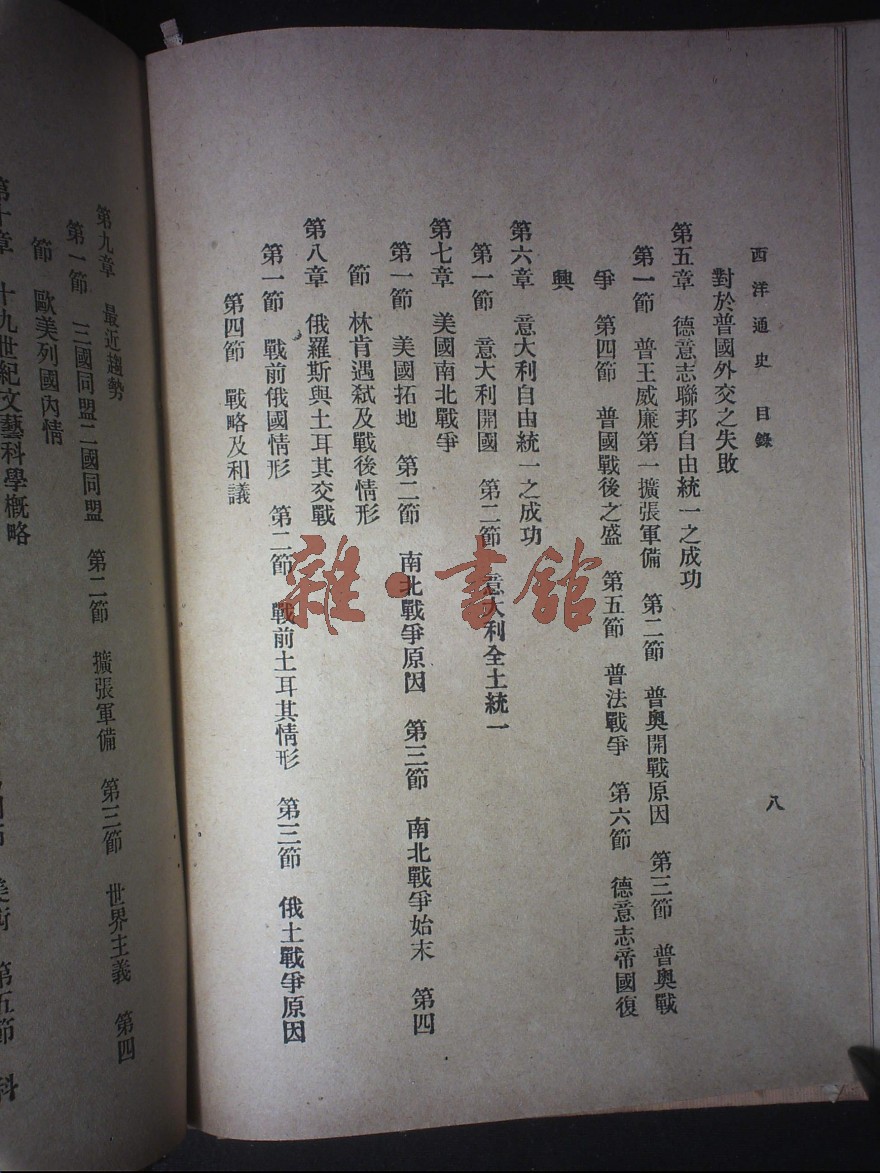 西洋通史 目錄
八
對於普國外交之失敗
第五章 德意志聯邦自由統一之成功
第一節 普王威廉第一擴張軍備 第二節 普奧開戰原因 第三節 普奧戰
爭 第四節 普國戰後之盛 第五節 普法戰爭 第六節 德意志帝國復
興
第六章 意大利自由統一之成功
第一節 意大利開國 第二節 意大利全土統一
第七章 美國南北戰爭
第一節 美國拓地 第二節 南北戰爭原因 第三節 南北戰爭始末 第四
節 林肯遇弒及戰後情形
第八章 俄羅斯與土耳其交戰
第一節 戰前俄國情形 第二節 戰前土耳其情形 第三節 俄土戰爭原因
第四節 戰略及和議
第九章 最近趨勢
第一節 三國同盟二國同盟 第二節 擴張軍備 第三節 世界主義 第四
節 歐美列國內情
第十章 十九世紀文藝科學概略
美術 第五節 科
雜·書館